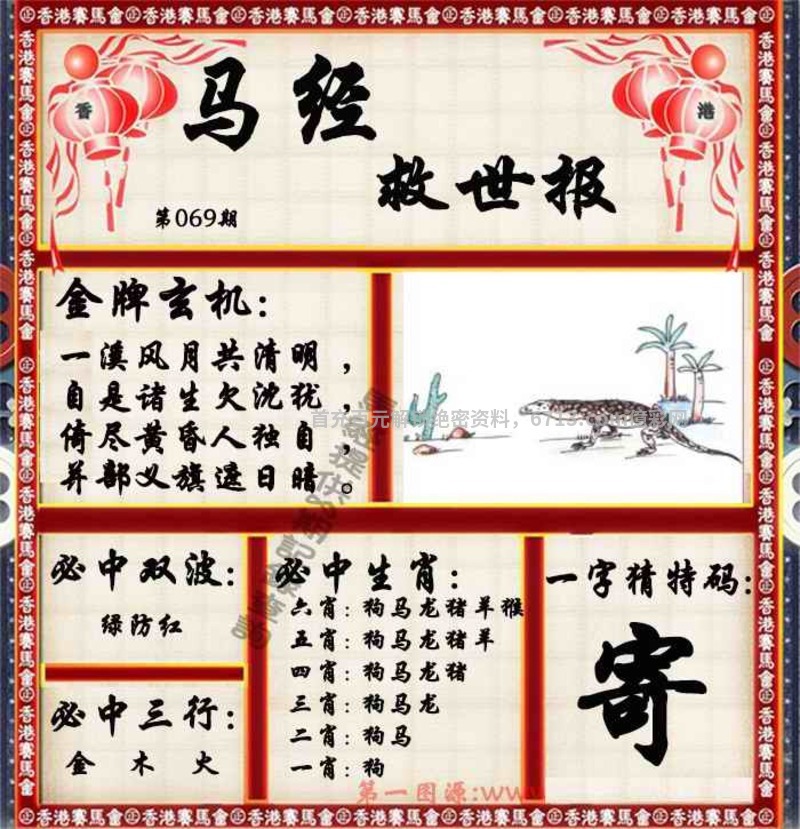 ㊣香港賽馬會㊣香港賽馬會㊣香港賽馬會㊣香港賽馬會㊣香港賽馬會㊣香港賽馬會㊣香港賽馬會㊣
香
港
马 经
救世报
第069期
金牌玄机：
一溪风月共清明，
自是诸生欠沈犹，
倚尽黄昏人独自，
并部义旗遮日暗。
首充百元解
绝密资料，
必中双波：
绿防红
必中三行：
金 木 火
必中生肖：
六肖：狗马龙猪羊猴
五肖：狗马龙猪羊
四肖：狗马龙猪
三肖：狗马龙
二肖：狗马
一肖：狗
一字猜特码：
寄
第一图源:www
㊣香港賽馬會㊣香港賽馬會㊣香港賽馬會㊣香港賽馬會㊣香港賽馬會㊣香港賽馬會㊣香港賽馬會㊣